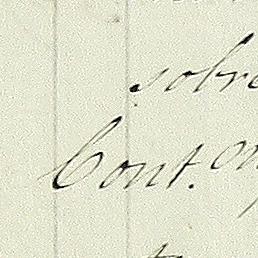 sobre
Cont. on